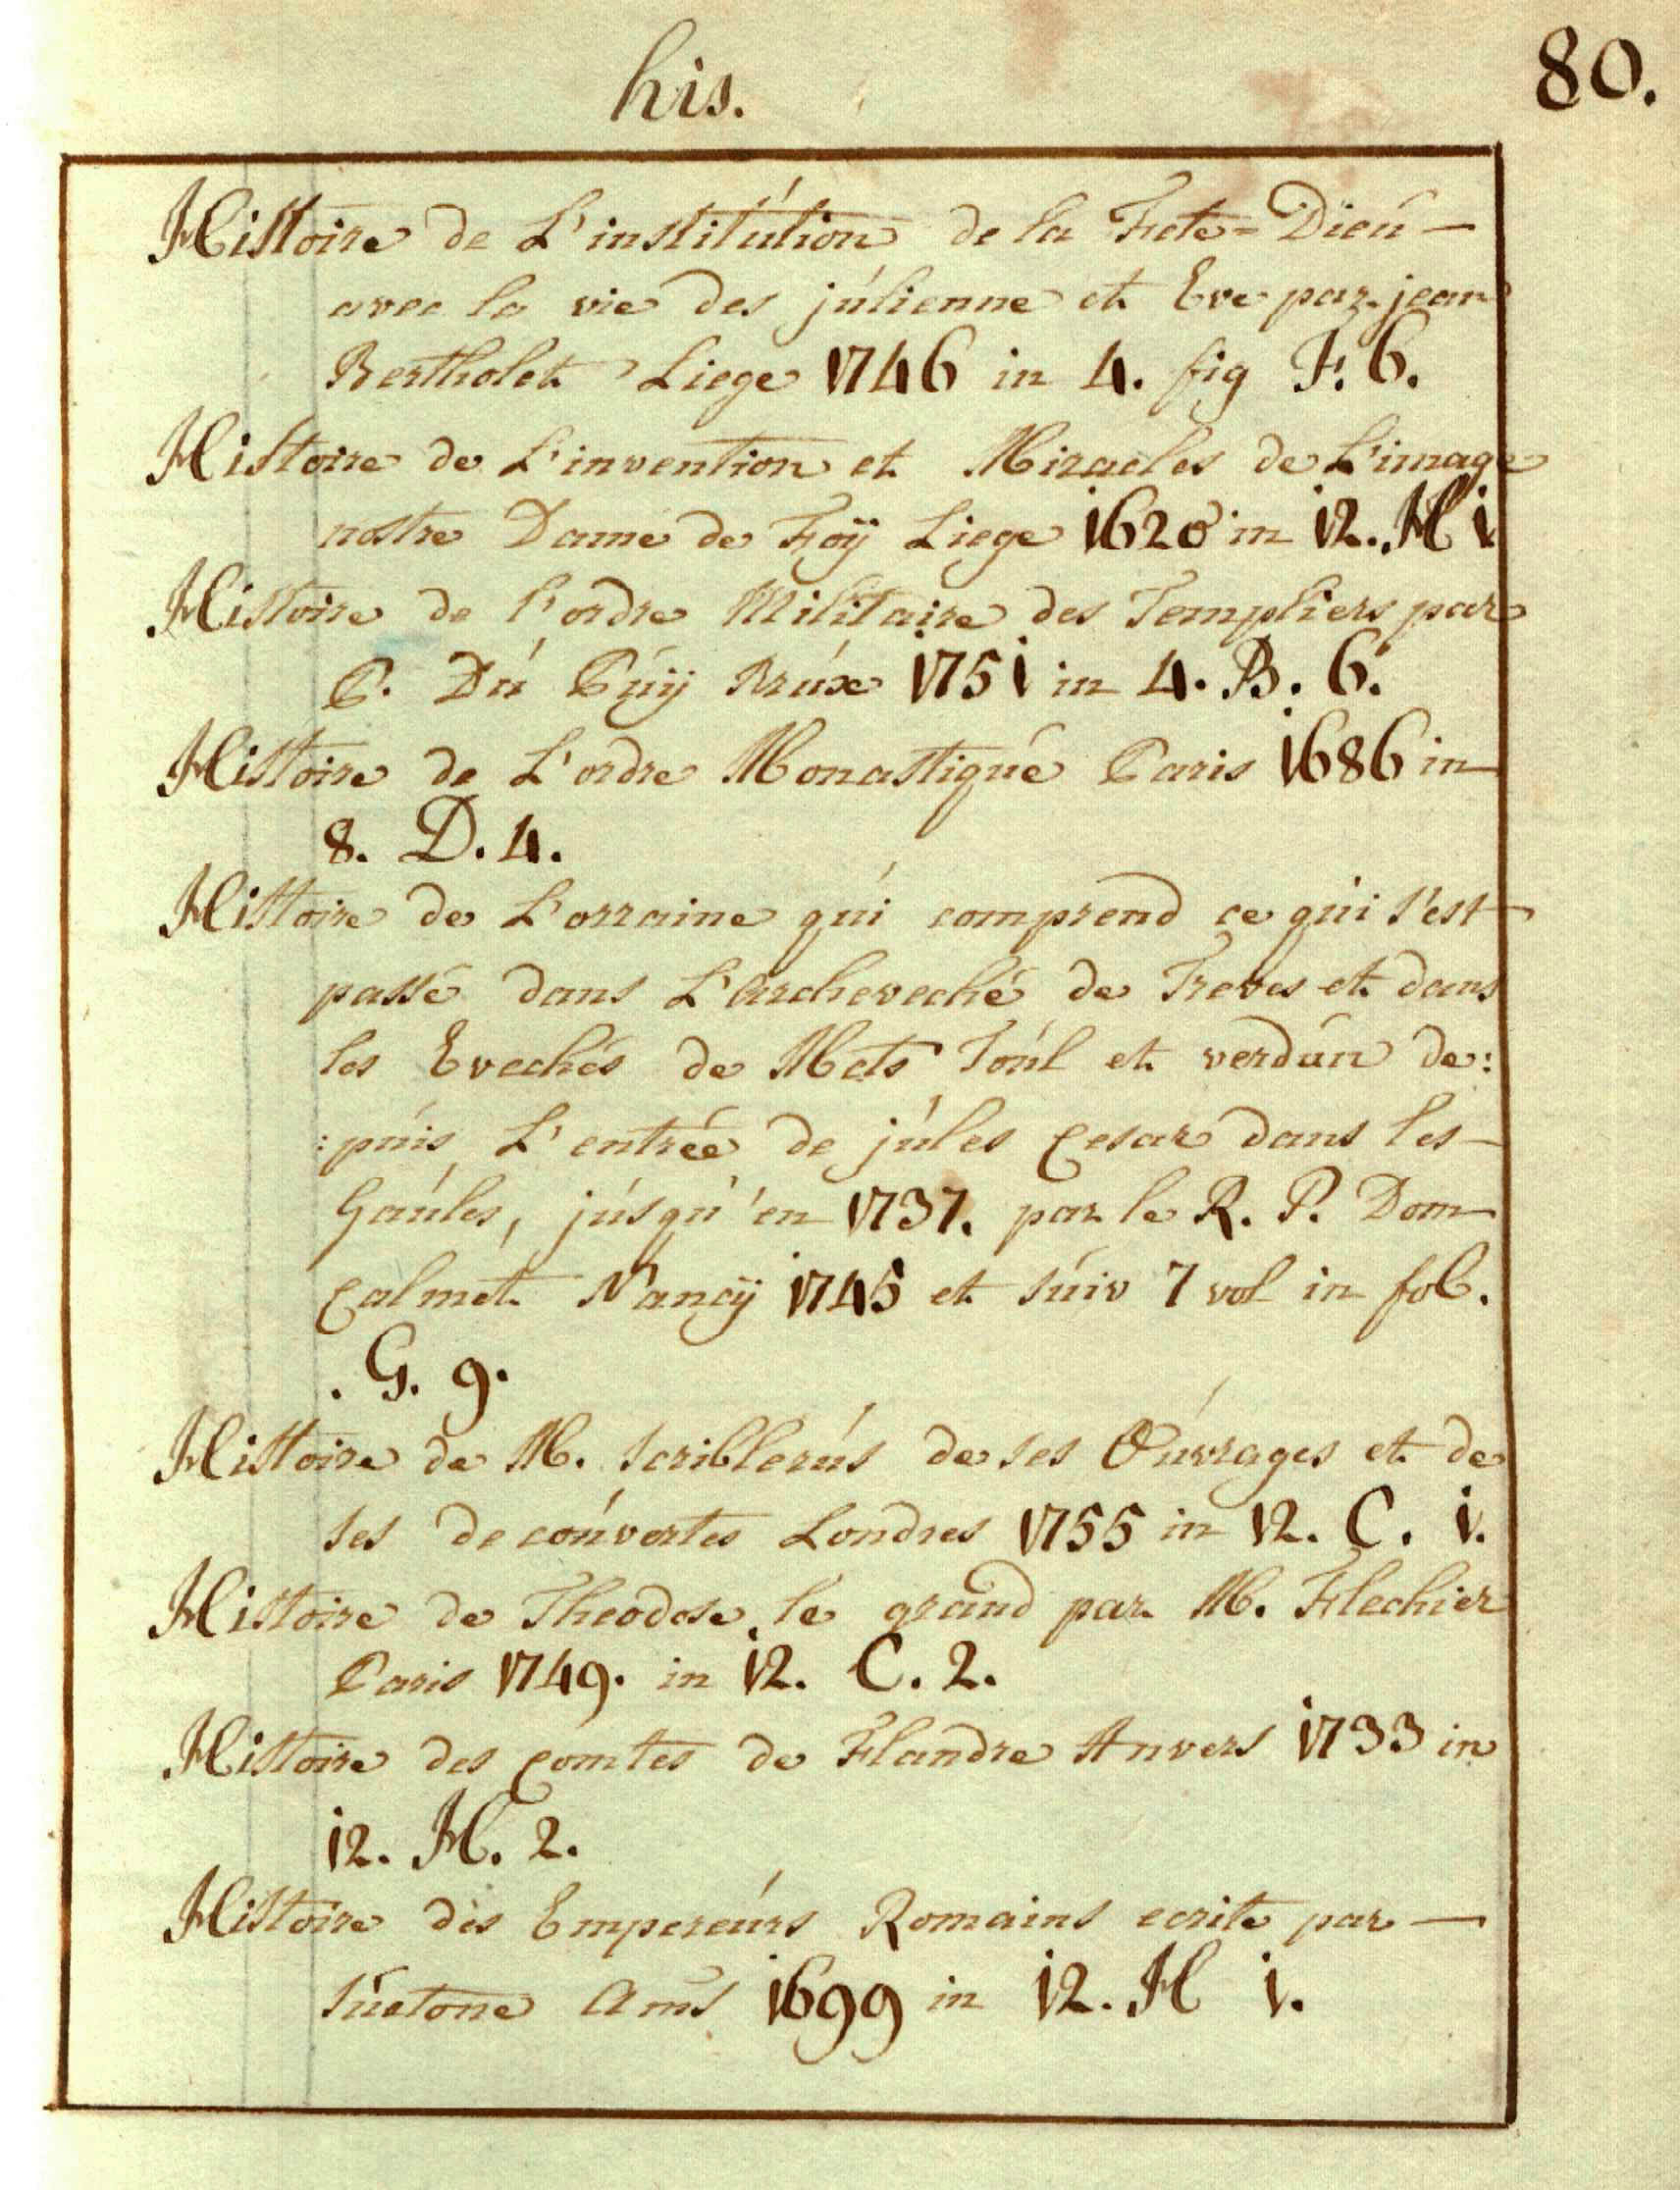 his.
80.
Histoire de L'institution de la Fete=Dieu —
avec la vie des julienne et Eve par jean
Bertholet Liege 1746 in 4. fig F. 6.
Histoire de L'invention et Miracles de L'image
nostre Dame de Foÿ Liege 1620 in 12. H 1
Histoire de l'ordre Militaire des Templiers par
P. Du Puÿ Brux 1751 in 4. B. 6.
Histoire de L'ordre Monastique Paris 1686 in
8. D. 4.
Histoire de Lorraine qui comprend ce qui s'est
passé dans L'Archeveché de Treves et dans
les Evechés de Mets Toul et verdun de:
:puis L'entrée de jules Cesar dans les —
Gaules, jusqu'en 1737. par le R. P. Dom
Calmet Nancÿ 1745 et suiv 7 vol in fol.
. G. 9.
Histoire de M. scriblerus de ses Ouvrages et de
ses decouvertes Londres 1755 in 12. C. 1.
Histoire de Theodose le grand par M. Flechier
Paris 1749. in 12. C. 2.
Histoire des Comtes de Flandre Anvers 1733 in
12. H. 2.
Histoire des Empereurs Romains ecrite par —
suetone Ams 1699 in 12. H 1.